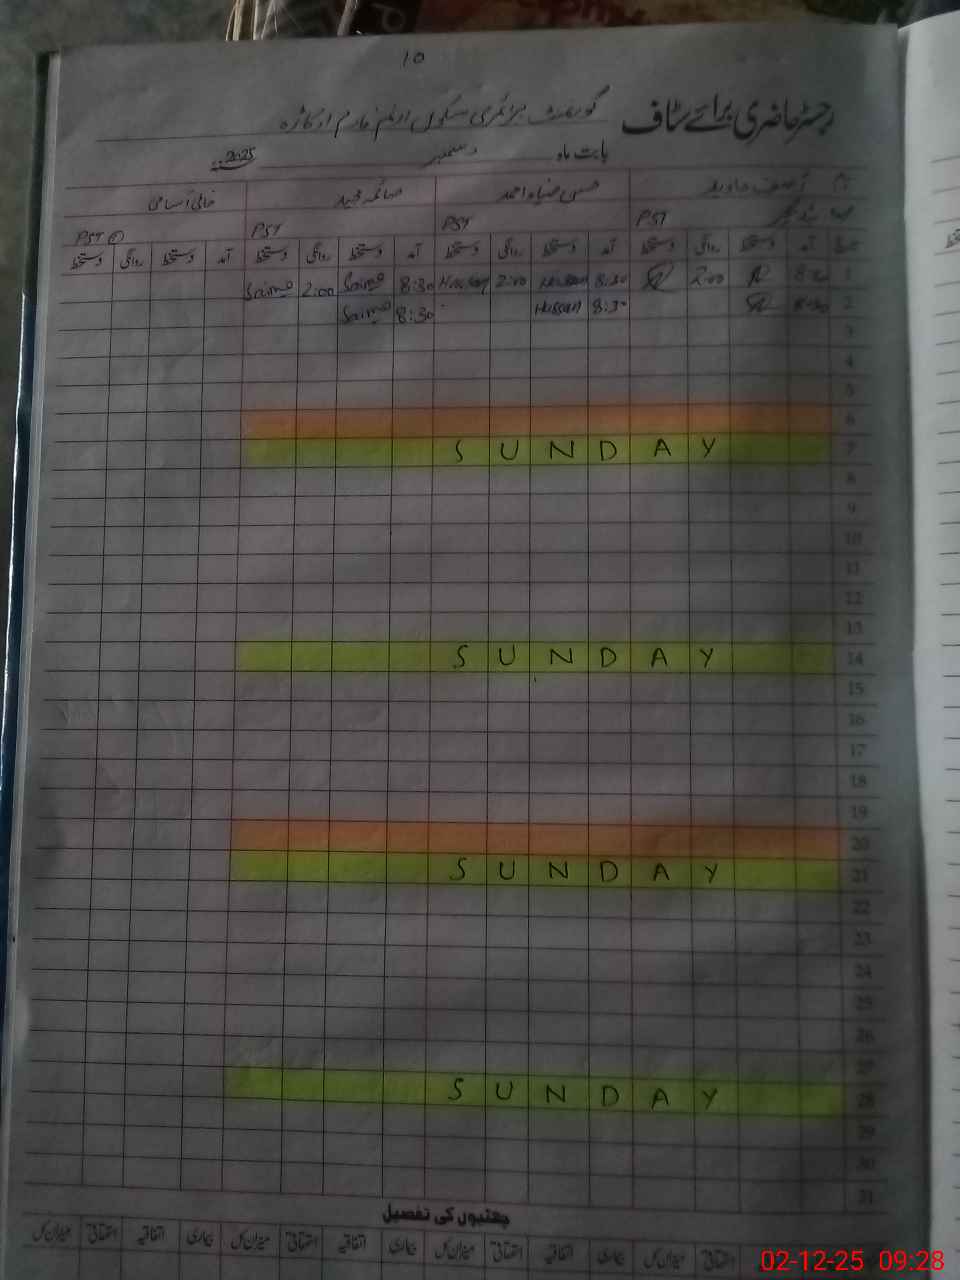 10
رجسٹر حاضری برائے سٹاف گورنمنٹ پرائمری سکول فارم اوکاڑہ
بابت ماہ دسمبر 2025
آصف جاوید حسن ضیاء احمد صائمہ مجید خالی آسامی
PST PST PST PST
آمد دستخط روانگی دستخط آمد دستخط روانگی دستخط آمد دستخط روانگی دستخط آمد دستخط روانگی دستخط
1 8:30 2:00 8:30 Hassan 2:00 Hassan 8:30 Saima 2:00 Saima
2 8:30 8:30 Hassan 8:30 Saima
3
4
5
6
7 SUNDAY
8
9
10
11
12
13
14 SUNDAY
15
16
17
18
19
20
21 SUNDAY
22
23
24
25
26
27
28 SUNDAY
29
30
31
چھٹیوں کی تفصیل
اتفاقیہ میزان کل بیماری اتفاقیہ استحقاقی میزان کل بیماری اتفاقیہ استحقاقی میزان کل بیماری اتفاقیہ استحقاقی میزان کل
02-12-25 09:28